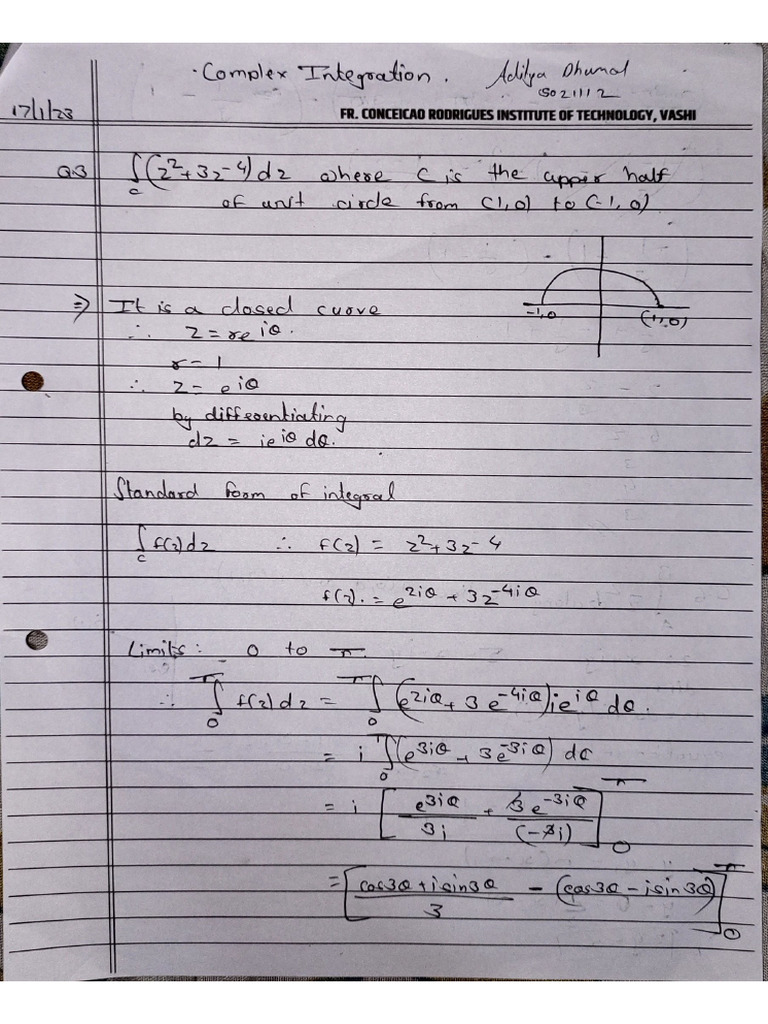 Complex Integration. Aditya Dhumal
5021112
17/1/23
FR. CONCEICAO RODRIGUES INSTITUTE OF TECHNOLOGY, VASHI
Q.3 ∫_C (z²+3z-4)dz where C is the upper half
of unit circle from (1,0) to (-1,0)
-1,0 (1,0)
⇒ It is a closed curve
∴ z=re^{iθ}.
r=1
∴ z=e^{iθ}
by differentiating
dz = ie^{iθ} dθ.
Standard form of integral
∫_C f(z)dz ∴ f(z) = z²+3z-4
f(z). = e^{2iθ} + 3z^{-4iθ}
Limits: 0 to π.
∴ ∫_0^π f(z)dz = ∫_0^π (e^{2iθ} + 3e^{-4iθ})ie^{iθ} dθ.
= i ∫_0^π (e^{3iθ} + 3e^{-3iθ}) dθ
= i [e^{3iθ}/3i + 3e^{-3iθ}/(-3i)]_0^π
= [(cos3θ + isin3θ)/3 - (cos3θ - isin3θ)]_0^π